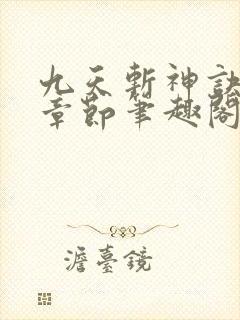 九天斬神訣
章節筆趣閣
澹臺鏡